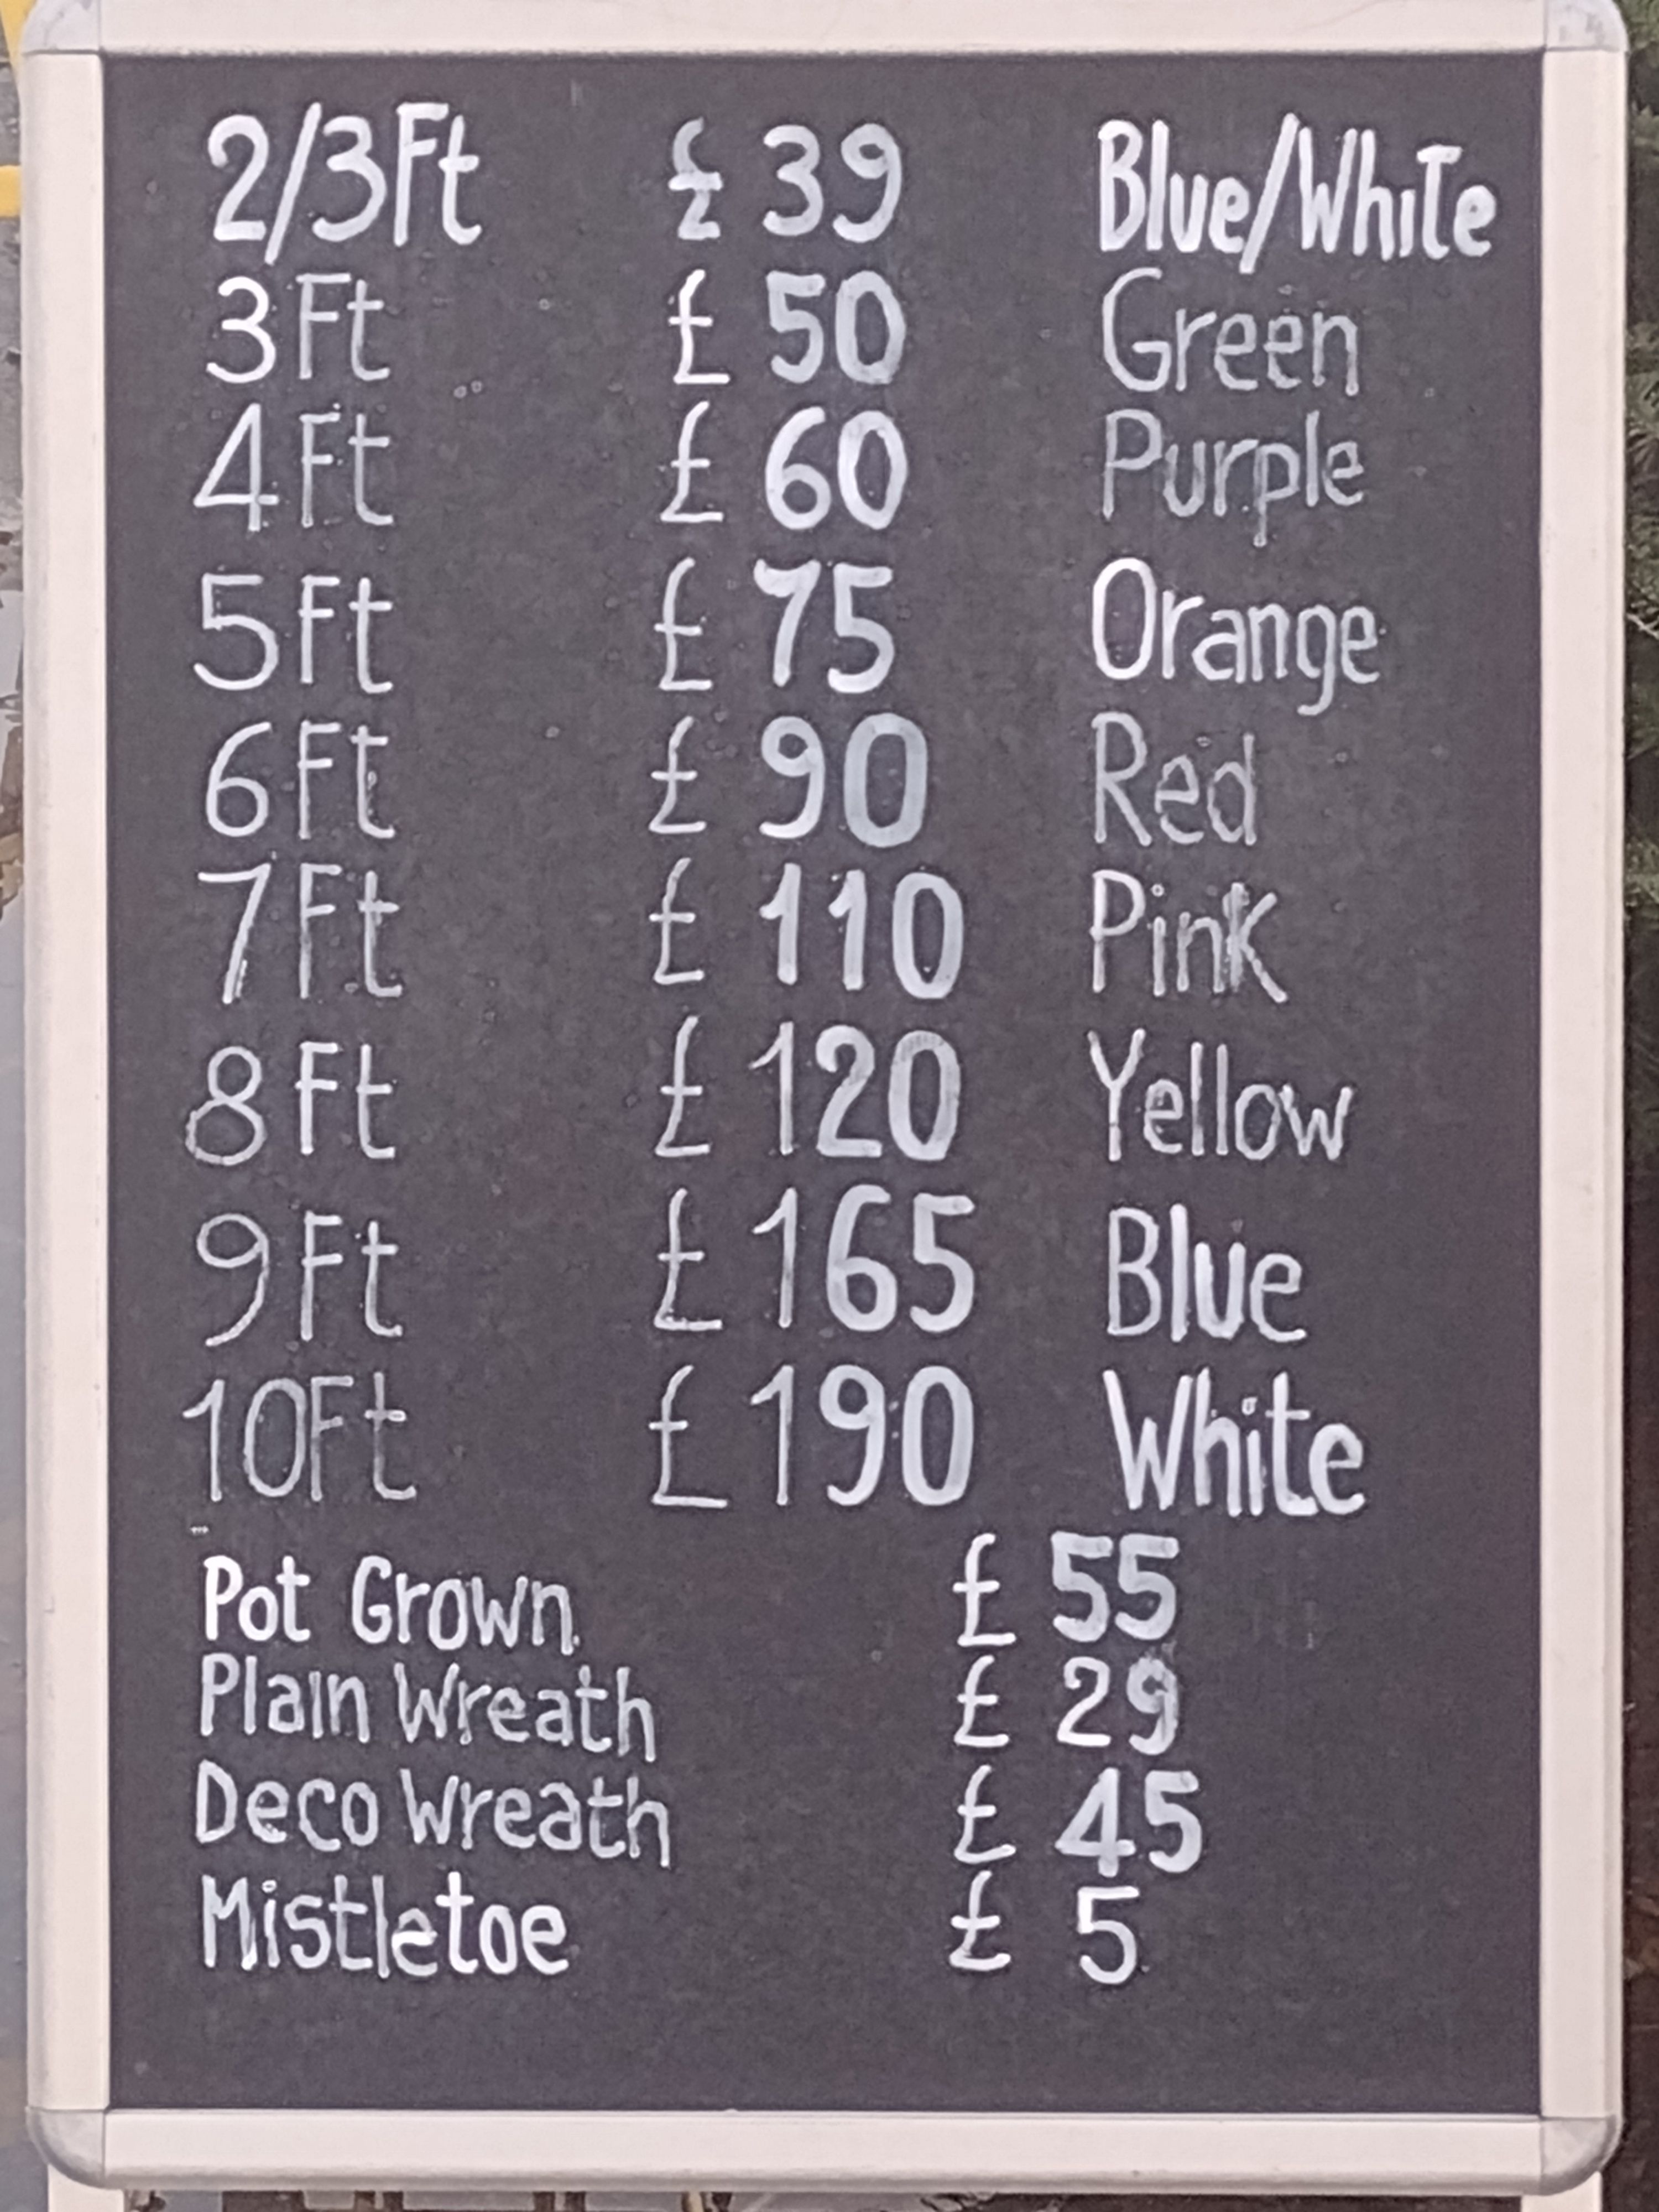 2/3Ft £ 39 Blue/White
3Ft £ 50 Green
4Ft £ 60 Purple
5Ft £ 75 Orange
6Ft £ 90 Red
7Ft £ 110 Pink
8Ft £ 120 Yellow
9Ft £ 165 Blue
10Ft £ 190 White
Pot Grown £ 55
Plain Wreath £ 29
Deco Wreath £ 45
Mistletoe £ 5